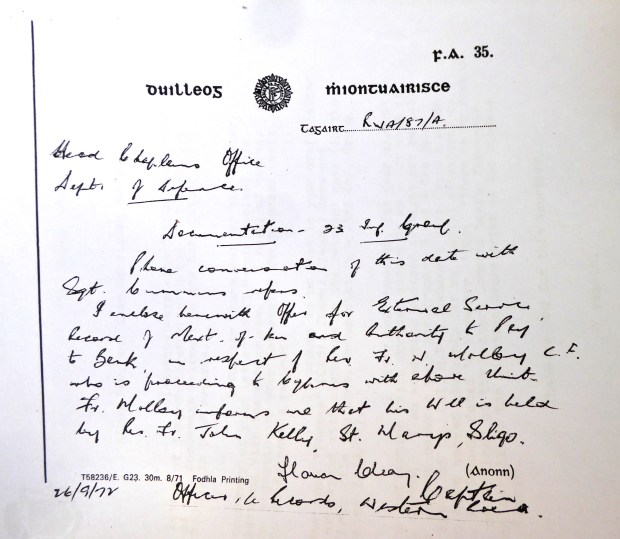 F.A. 35.
duilleog mionтuairisce
Tagairt RVA/87/A.
Head Chaplains Office
Dept. of Defence.
Documentation - 23 Inf. Group.
Phone conversation of this date with
Sgt. Cummins refers.
I enclose herewith Offer for External Service,
Record of Next-of-kin and Authority to Pay
to Bank in respect of Rev. Fr. N. Molloy C.F.
who is proceeding to Cyprus with above Unit.
Fr. Molloy informs me that his Will is held
by Rev. Fr. John Kelly, St. Marys, Sligo.
(Anonn)
Captain
T58236/E. G23. 30m. 8/71 Fodhla Printing
26/9/72 Officer i/c Records, Western Command.